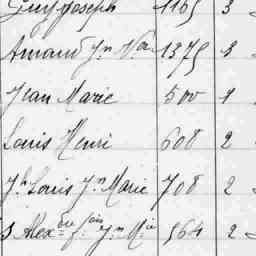 Joseph 1165 3
Armand Jn 1375 3
Jean Marie 500 1
Louis Henri 608 2
Jh Louis Jn Marie 708 2
Alexdre Jn Mie 564 2